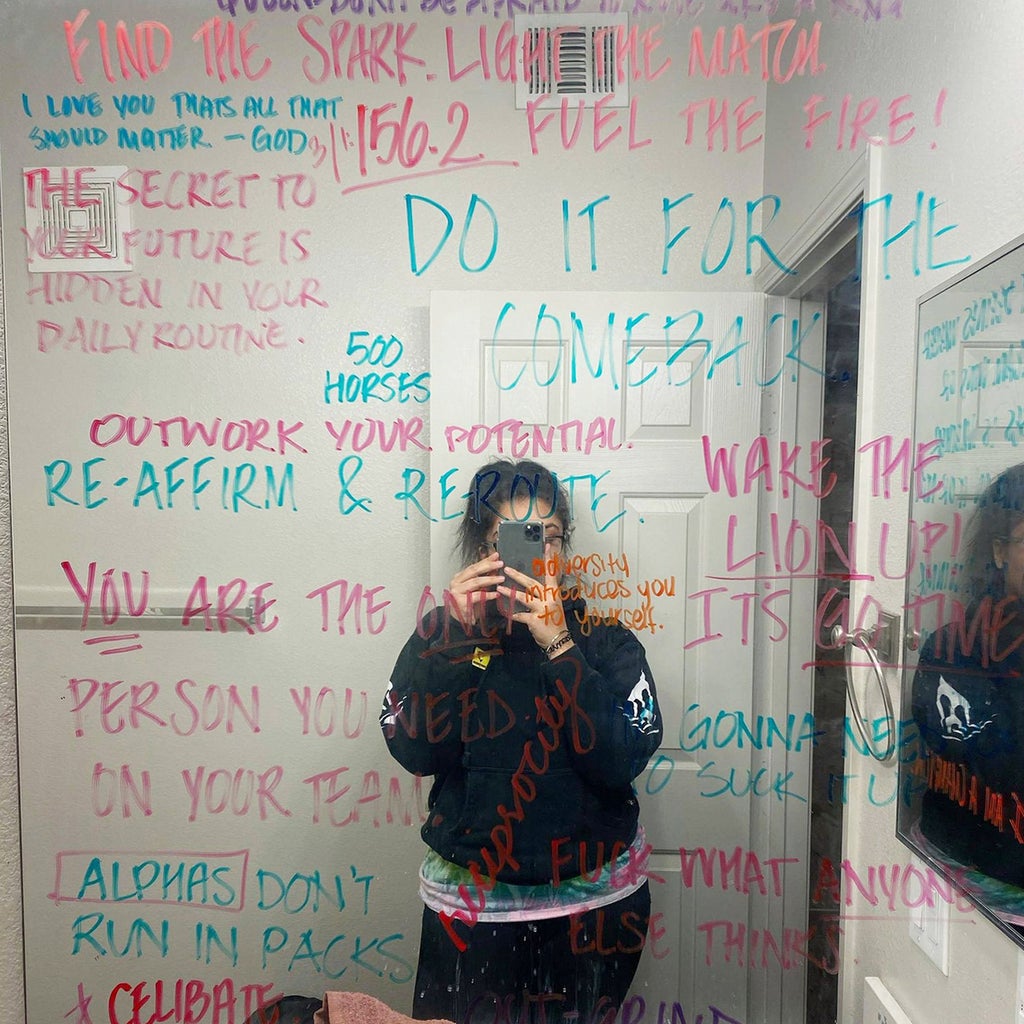 FIND THE SPARK. LIGHT THE MATCH.
FUEL THE FIRE!
I LOVE YOU THATS ALL THAT
SHOULD MATTER. - GOD
3/1: 156.2
THE SECRET TO
YOUR FUTURE IS
HIDDEN IN YOUR
DAILY ROUTINE.
DO IT FOR THE
COMEBACK.
500
HORSES
OUTWORK YOUR POTENTIAL.
RE-AFFIRM & RE-ROUTE.
WAKE THE
LION UP!
IT'S GO TIME
adversity
introduces you
to yourself.
YOU ARE THE ONLY
PERSON YOU NEED
ON YOUR TEAM.
GONNA NEED
TO SUCK IT UP
reciprocity
FUCK WHAT ANYONE
ELSE THINKS
ALPHAS DON'T
RUN IN PACKS
* CELIBATE.
OUT-GRIND
I AM A